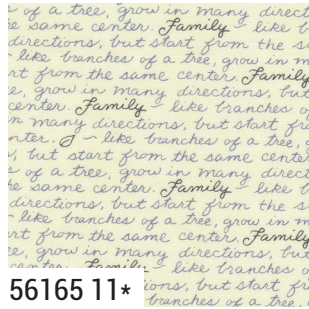 of a tree, grow in many direct
same center. Family like b
directions, but start from the s
like branches of a tree, grow in m
rt from the same center. Family
e, grow in many directions, but
center. Family ~ like branches o
n many directions, but start fr
nter. ~ like branches of a tree,
, but start from the same cente
s of a tree, grow in many direct
he same center. Family ~ like b
directions, but start from the s
~ like branches of a tree, grow in m
rt from the same center. Family
e, grow in many directions, but
center. Family ~ like branches o
ions, but start fr
branches of a tree,
56165 11*